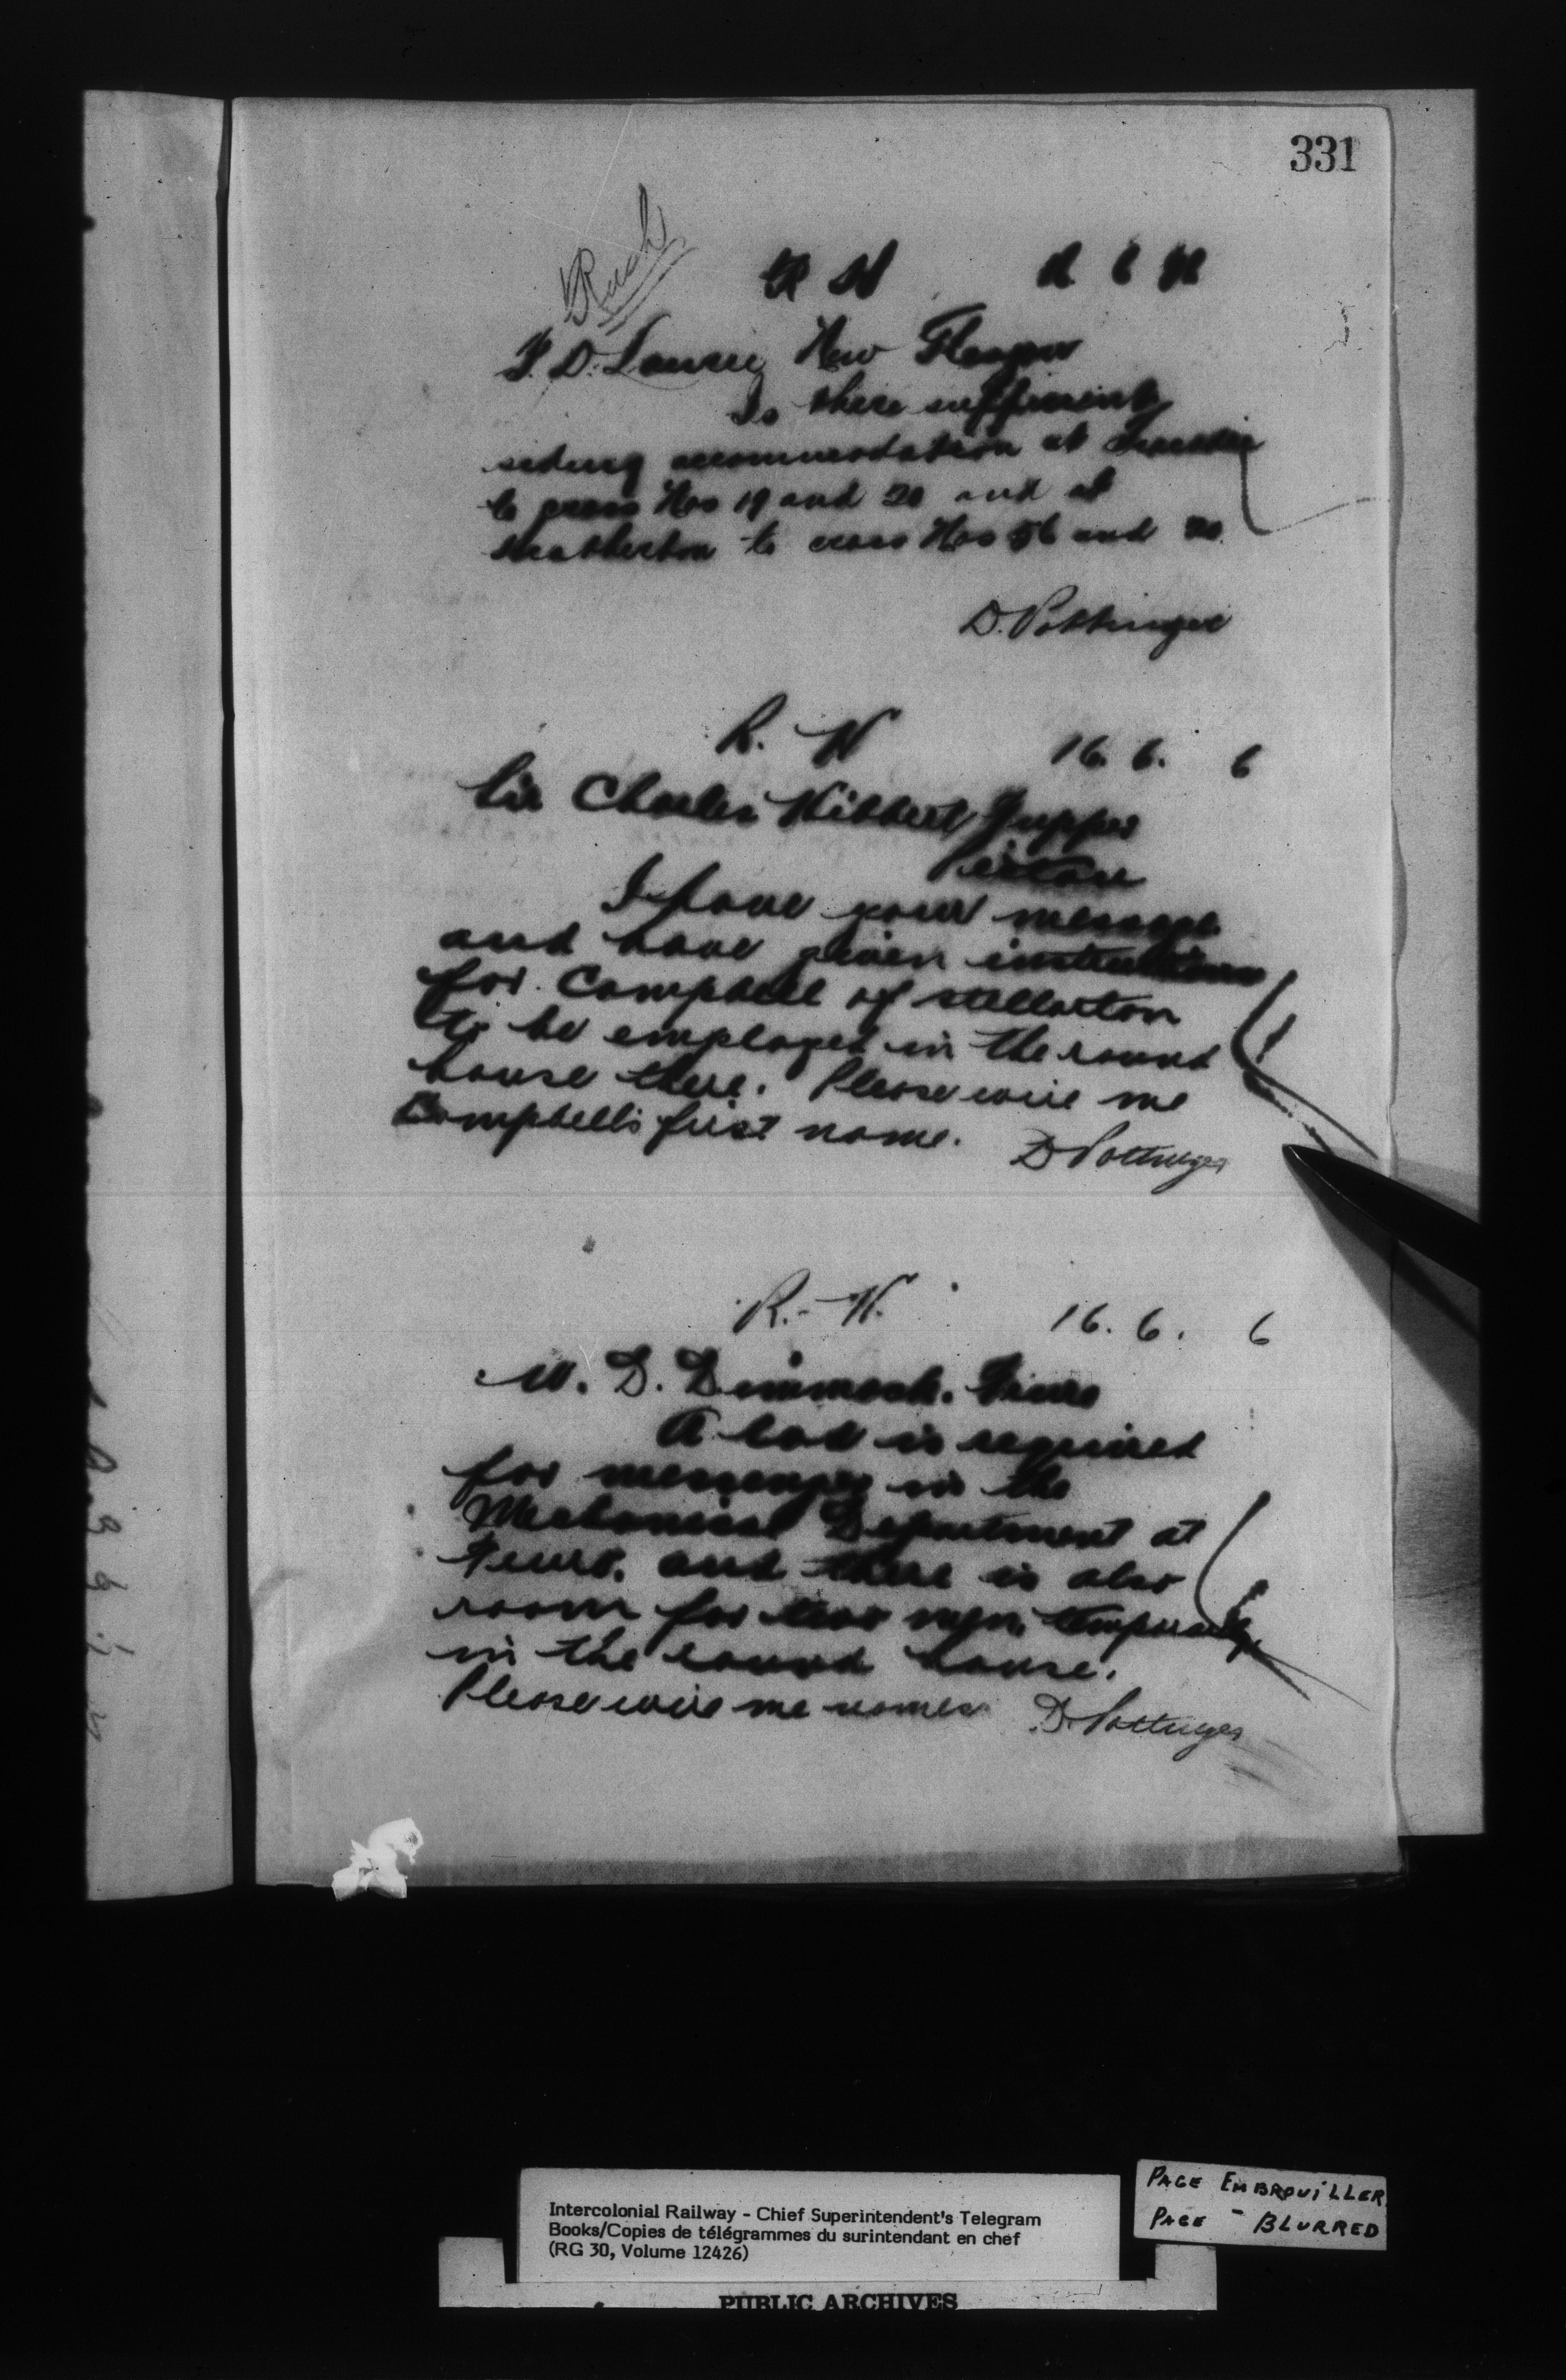 331
Rush
R N
J. D. Lawrie New Glasgow
Is there sufficient
siding accommodation at
to cross Nos 19 and 20 and at
Heatherton to cross Nos 56 and 20.
D. Pottinger
R. N 16. 6. 6
Sir Charles Hibbert Tupper
Pictou
I have your message
and have given instructions
for Campbell of Stellarton
to be employed in the round
house there. Please wire me
Campbell's first name.
D Pottinger
R. N. 16. 6. 6
W. D. Dimmock. Truro
A lad is required
for messenger in the
Mechanical Department at
Truro. and there is also
room for two men, temporarily,
in the round house.
Please wire me names
D. Pottinger
Intercolonial Railway - Chief Superintendent's Telegram
Books/Copies de télégrammes du surintendant en chef
(RG 30, Volume 12426)
PAGE EMBROUILLER
PAGE - BLURRED
PUBLIC ARCHIVES